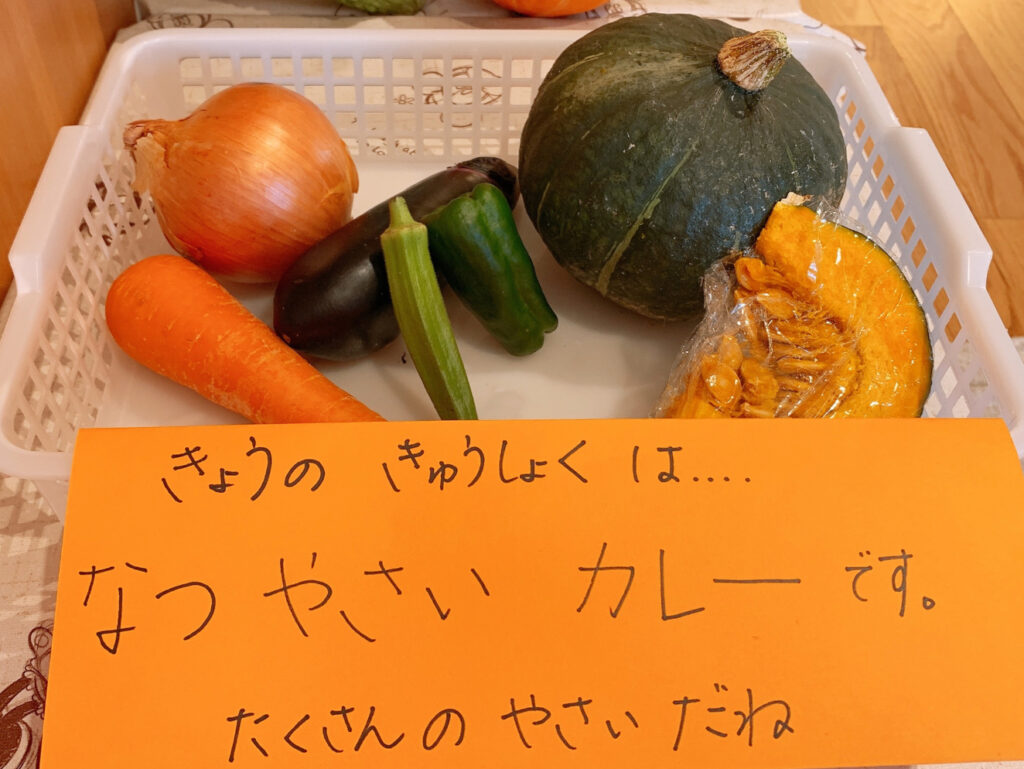 きょうの きゅうしょく は....
なつ やさい カレー です。
たくさんの やさい だね